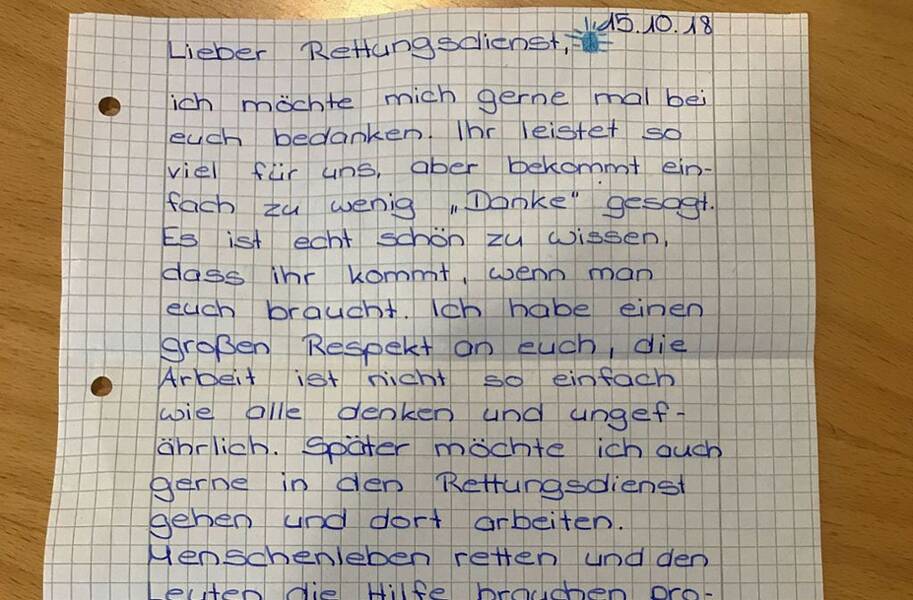 15.10.18
Lieber Rettungsdienst,
ich möchte mich gerne mal bei
euch bedanken. Ihr leistet so
viel für uns, aber bekommt ein-
fach zu wenig „Danke“ gesagt.
Es ist echt schön zu wissen,
dass ihr kommt, wenn man
euch braucht. Ich habe einen
großen Respekt an euch, die
Arbeit ist nicht so einfach
wie alle denken und ungef-
ährlich. Später möchte ich auch
gerne in den Rettungsdienst
gehen und dort arbeiten.
Menschenleben retten und den
Leuten die Hilfe brauchen pro-